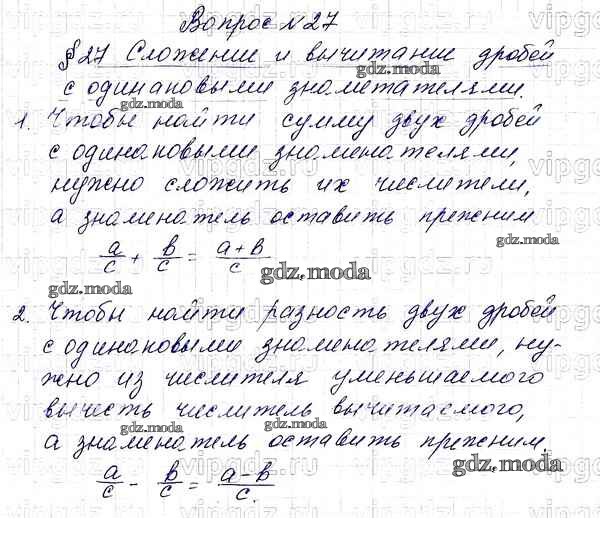 Вопрос №27
§27 Сложение и вычитание дробей
с одинаковыми знаметателями.
1. Чтобы найти сумму двух дробей
с одинаковыми знаменателями,
нужно сложить их числители,
а знаменатель оставить прежним
a/c + b/c = a+b/c
2. Чтобы найти разность двух дробей
с одинаковыми знаменателями, ну-
жно из числителя уменьшаемого
вычесть числитель вычитаемого,
а знаменатель оставить прежним.
a/c - b/c = a-b/c.
gdz.moda
gdz.moda
gdz.moda
gdz.moda
gdz.moda
gdz.moda
gdz.moda
gdz.moda
gdz.moda
vipgdz.ru